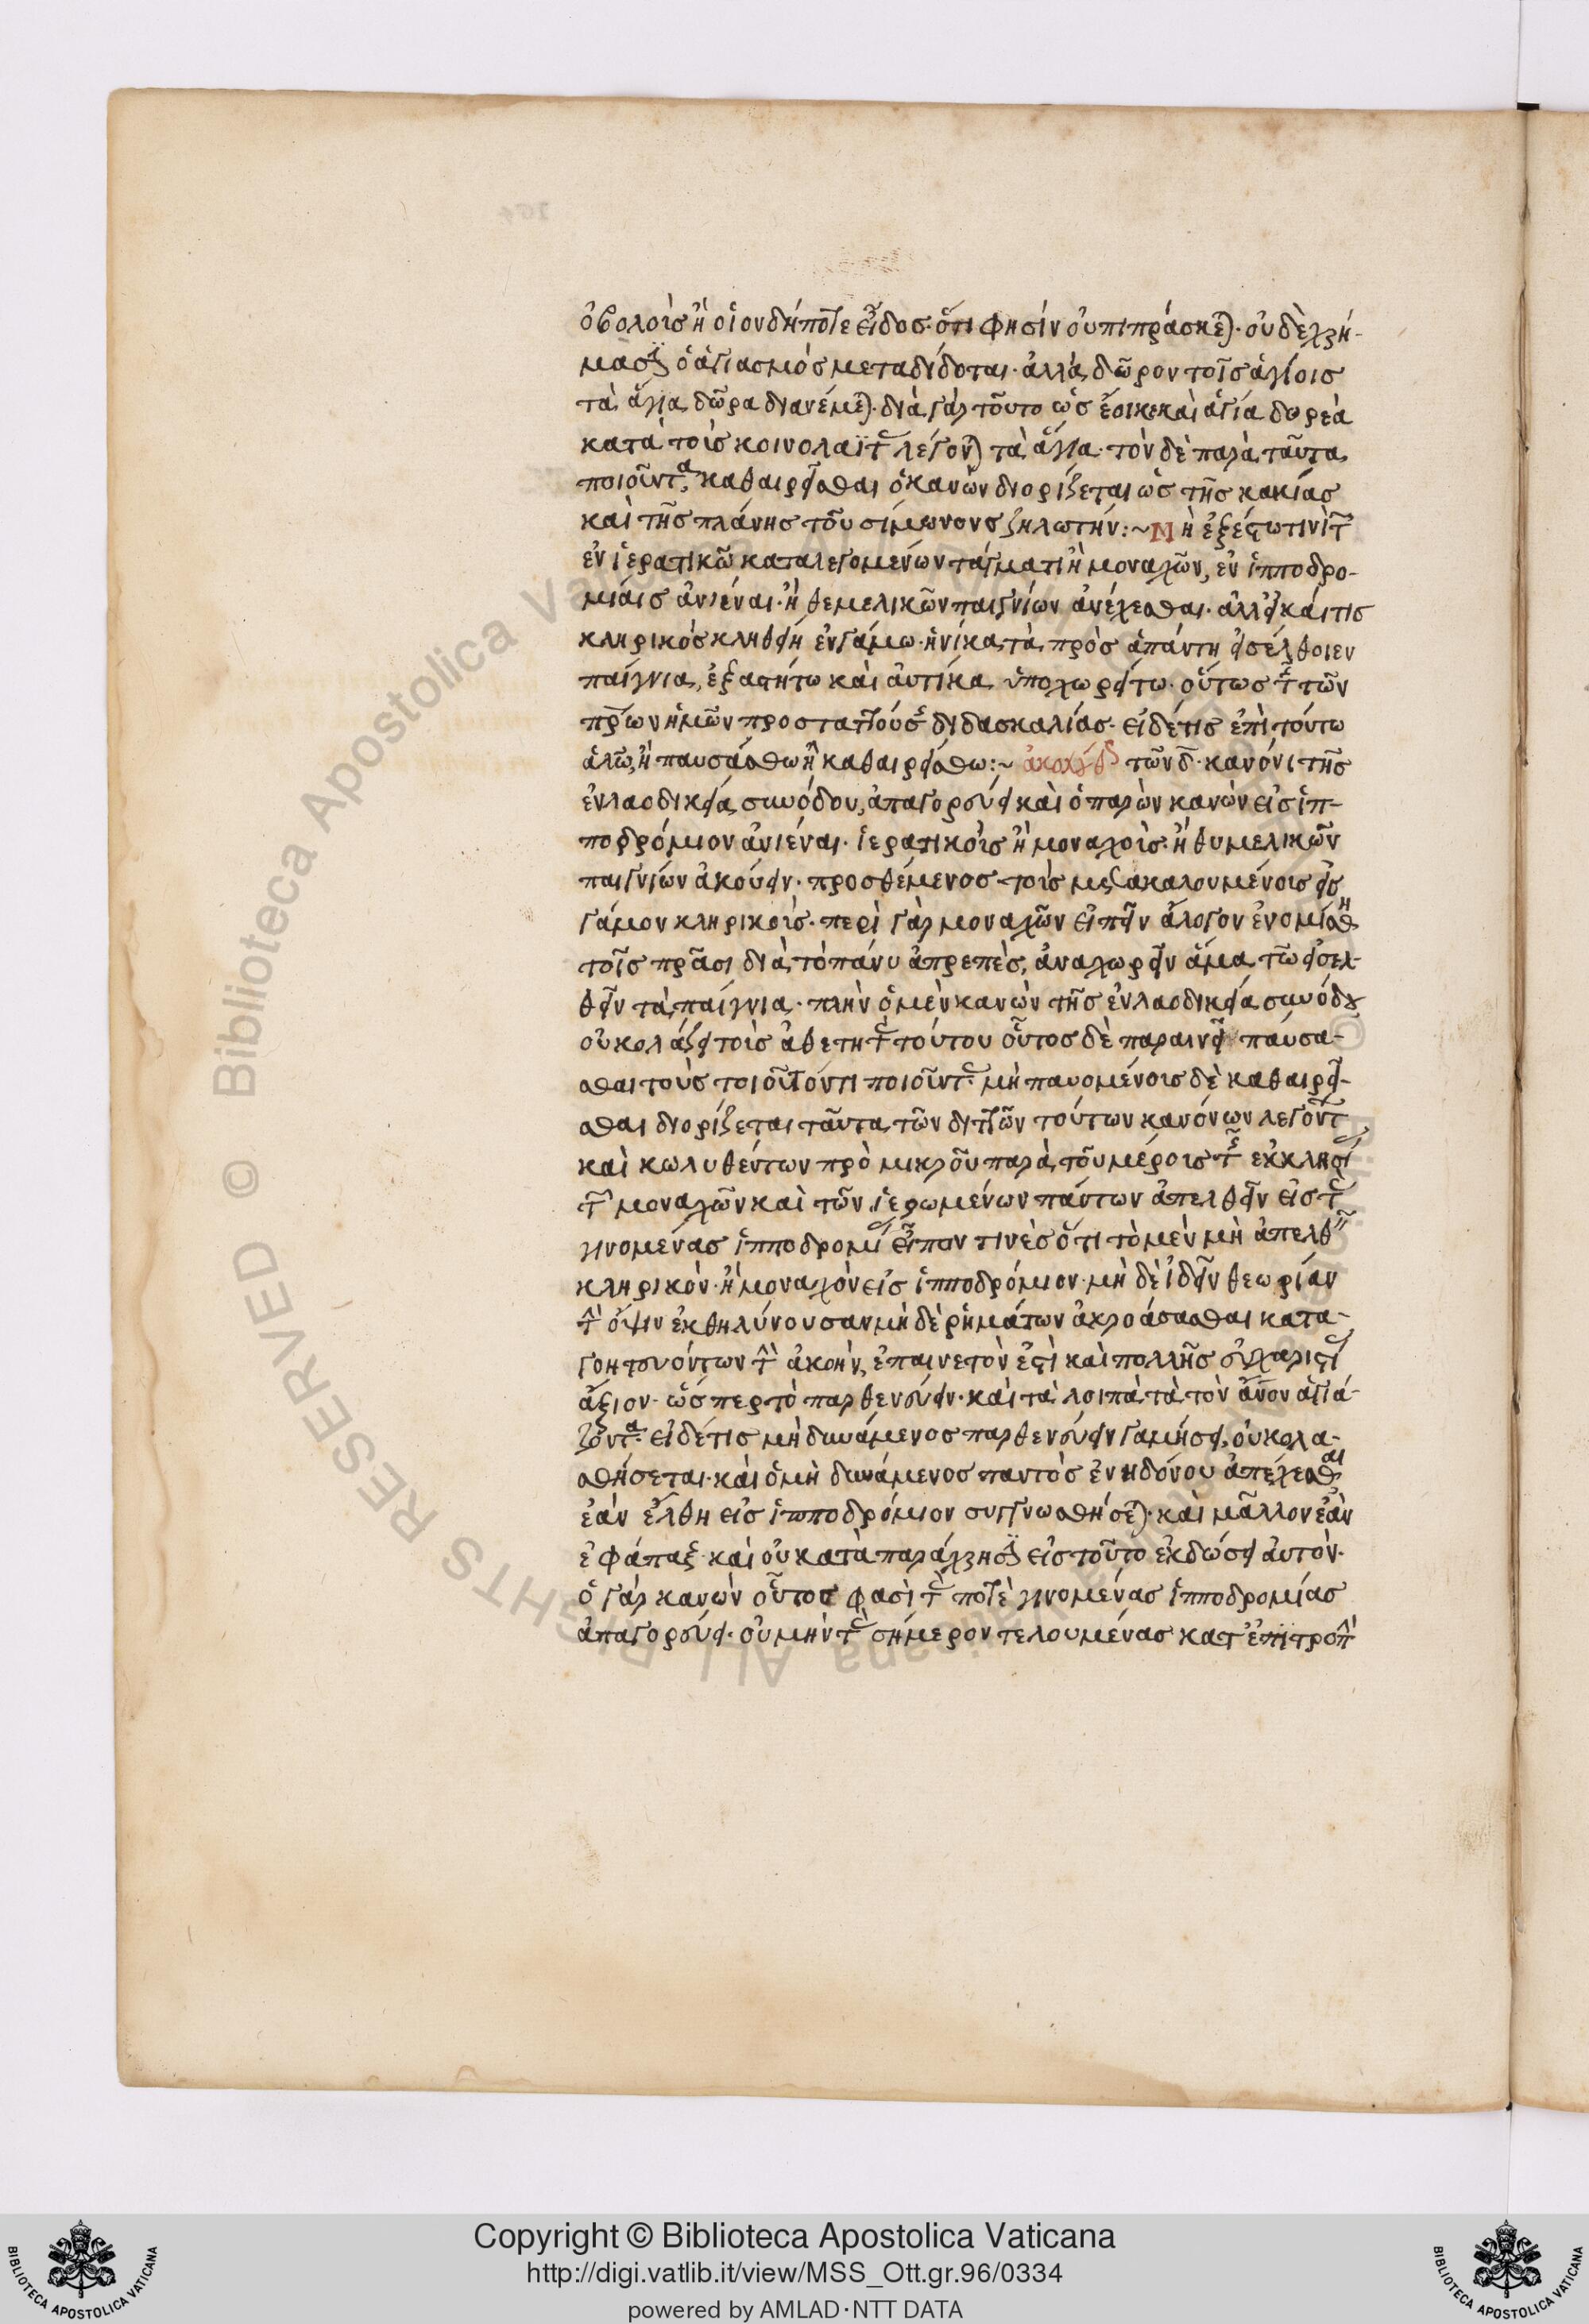 ὀβολοὺς ἢ οἱονδήποτε εἶδος· ὅτι φησὶν οὐ πιπράσκεται· οὐδὲ χρή-
μασιν ὁ ἁγιασμὸς μεταδίδοται· ἀλλὰ δῶρον τοῖς ἁγίοις
τὰ ἅγια δῶρα διανέμεται· διὰ γὰρ τοῦτο ὡς ἔοικε καὶ ἁγία δωρεὰ
κατὰ τοὺς κοινολαΐτας λέγονται τὰ ἅγια· τὸν δὲ παρὰ ταῦτα
ποιοῦντα, καθαιρεῖσθαι ὁ κανὼν διορίζεται ὡς τῆς κακίας
καὶ τῆς πλάνης τοῦ σίμωνος ζηλωτήν:~ Μὴ ἐξέστω τινὶ τῶν
ἐν ἱερατικῷ καταλεγομένων τάγματι ἢ μοναχῶν, ἐν ἱπποδρο-
μίαις ἀνιέναι· ἢ θεμελικῶν παιγνίων ἀνέχεσθαι· ἀλλ' εἰ καί τις
κληρικὸς κληθείη ἐν γάμω· ἡνίκα τὰ πρὸς ἀπάντη εἰσέλθοιεν
παίγνια, ἐξαστήτω καὶ αὐτίκα ὑποχωρείτω· οὕτως τῆς τῶν
πρων ἡμῶν προσταττούσης διδασκαλίας· εἰ δέ τις ἐπὶ τούτω
ἁλῶ, ἢ παυσάσθω ἢ καθαιρείσθω:~ τῶν δ· κανόνι τῆς
ἐν λαοδικεία συνόδου, ἀπαγορεύει καὶ ὁ παρὼν κανὼν εἰς ἱπ-
ποδρόμιον ἀνιέναι· ἱερατικοὺς ἢ μοναχούς· ἢ θυμελικῶν
παιγνίων ἀκούειν· προσθέμενος τοὺς μετακαλουμένους εἰς
γάμον κληρικούς· περὶ γὰρ μοναχῶν εἰπεῖν ἄλογον ἐνομίσθη
τοῖς πρασι διὰ τὸ πάνυ ἀπρεπὲς, ἀναχωρεῖν ἅμα τῶ εἰσελ-
θεῖν τὰ παίγνια· πλὴν ὁ μὲν κανὼν τῆς ἐν λαοδικεία συνόδου
οὐ κολάζει τοὺς ἀθετητὰς τούτου οὗτος δὲ παραινεῖ παύσα-
σθαι τοὺς τοιοῦτόν τι ποιοῦντας μὴ παυομένους δὲ καθαιρεῖ-
σθαι διορίζεται ταῦτα τῶν διττῶν τούτων κανόνων λεγόντων
καὶ κωλυθέντων πρὸ μικροῦ παρὰ τοῦ μέρους τῆς ἐκκλησίας
τῶν μοναχῶν καὶ τῶν ἱερωμένων πάντων ἀπελθεῖν εἰς τὰς
γινομένας ἱπποδρομίας εἶπον τινὲς ὅτι τὸ μὲν μὴ ἀπελθεῖν
κληρικὸν· ἢ μοναχὸν εἰς ἱπποδρόμιον· μὴ δὲ ἰδεῖν θεωρίαν
τὴν ὄψιν ἐκθηλύνουσαν μὴ δὲ ῥημάτων ἀκροάσασθαι κατα-
γοητευόντων τὴν ἀκοὴν, ἐπαινετὸν ἐστὶ καὶ πολλῆς εὐχαριστίας
ἄξιον· ὥσπερ τὸ παρθενεύειν· καὶ τὰ λοιπὰ τὰ τὸν ἄνον ἁγιά-
ζοντα· εἰ δέ τις μὴ δυνάμενος παρθενεύειν γαμήσει, οὐ κολα-
σθήσεται· καὶ ὁ μὴ δυνάμενος παντὸς ἐνηδόνου ἀπέχεσθαι
ἐὰν ἔλθη εἰς ἱπποδρόμιον συγγνωσθήσεται· καὶ μᾶλλον ἐὰν
ἐφάπαξ· καὶ οὐ κατὰ παράχρησιν εἰς τοῦτο ἐκδώσει αὐτόν·
ὁ γὰρ κανὼν οὗτος φασὶ τὰς ποτὲ γινομένας ἱπποδρομίας
ἀπαγορεύει· οὐ μὴν τὰς σήμερον τελουμένας κατ' ἐπιτροπὴν